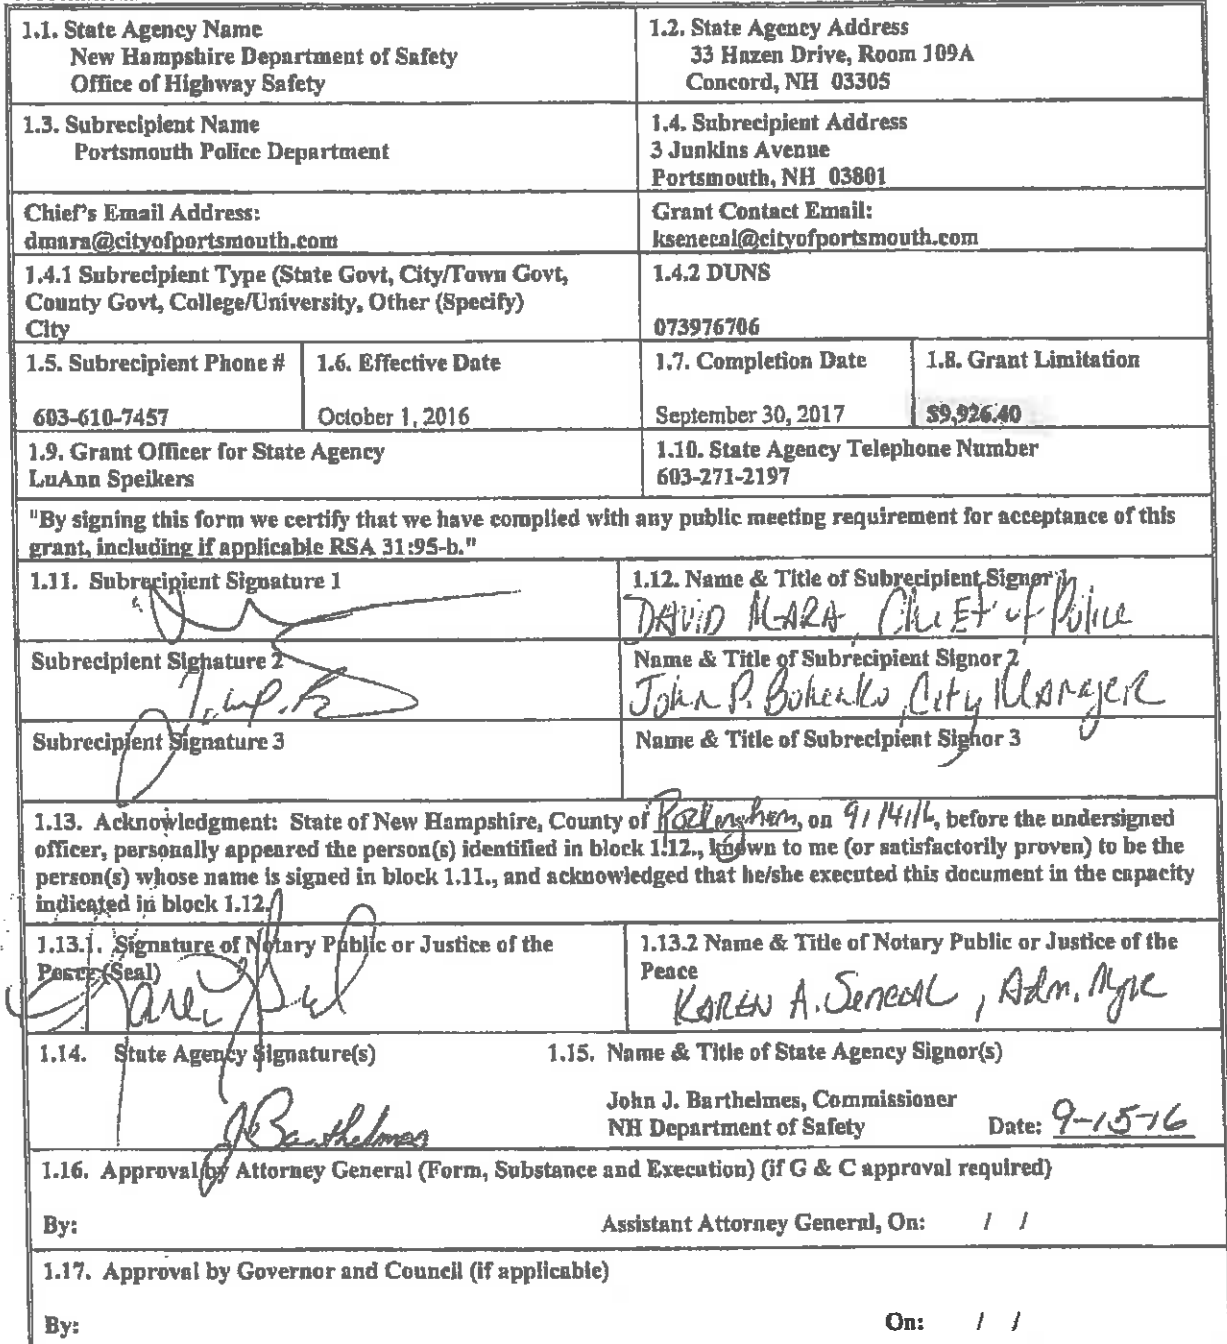 1.1. State Agency Name
New Hampshire Department of Safety
Office of Highway Safety
1.2. State Agency Address
33 Hazen Drive, Room 109A
Concord, NH 03305
1.3. Subrecipient Name
Portsmouth Police Department
1.4. Subrecipient Address
3 Junkins Avenue
Portsmouth, NH 03801
Chief's Email Address:
dmara@cityofportsmouth.com
Grant Contact Email:
ksenecal@cityofportsmouth.com
1.4.1 Subrecipient Type (State Govt, City/Town Govt,
County Govt, College/University, Other (Specify)
City
1.4.2 DUNS
073976706
1.5. Subrecipient Phone #
603-610-7457
1.6. Effective Date
October 1, 2016
1.7. Completion Date
September 30, 2017
1.8. Grant Limitation
$9,926.40
1.9. Grant Officer for State Agency
LuAnn Speikers
1.10. State Agency Telephone Number
603-271-2197
"By signing this form we certify that we have complied with any public meeting requirement for acceptance of this
grant, including if applicable RSA 31:95-b."
1.11. Subrecipient Signature 1
1.12. Name & Title of Subrecipient Signor 1
DAVID MARA, Chief of Police
Subrecipient Signature 2
Name & Title of Subrecipient Signor 2
John P. Bohenko, City Manager
Subrecipient Signature 3
Name & Title of Subrecipient Signor 3
1.13. Acknowledgment: State of New Hampshire, County of Rockingham, on 9/14/16, before the undersigned
officer, personally appeared the person(s) identified in block 1.12., known to me (or satisfactorily proven) to be the
person(s) whose name is signed in block 1.11., and acknowledged that he/she executed this document in the capacity
indicated in block 1.12.
1.13.1. Signature of Notary Public or Justice of the
Peace (Seal)
1.13.2 Name & Title of Notary Public or Justice of the
Peace
KAREN A. Senecal, Adm. Mgr
1.14. State Agency Signature(s)
J Barthelmes
1.15. Name & Title of State Agency Signor(s)
John J. Barthelmes, Commissioner
NH Department of Safety
Date: 9-15-16
1.16. Approval by Attorney General (Form, Substance and Execution) (if G & C approval required)
By: Assistant Attorney General, On: / /
1.17. Approval by Governor and Council (if applicable)
By: On: / /